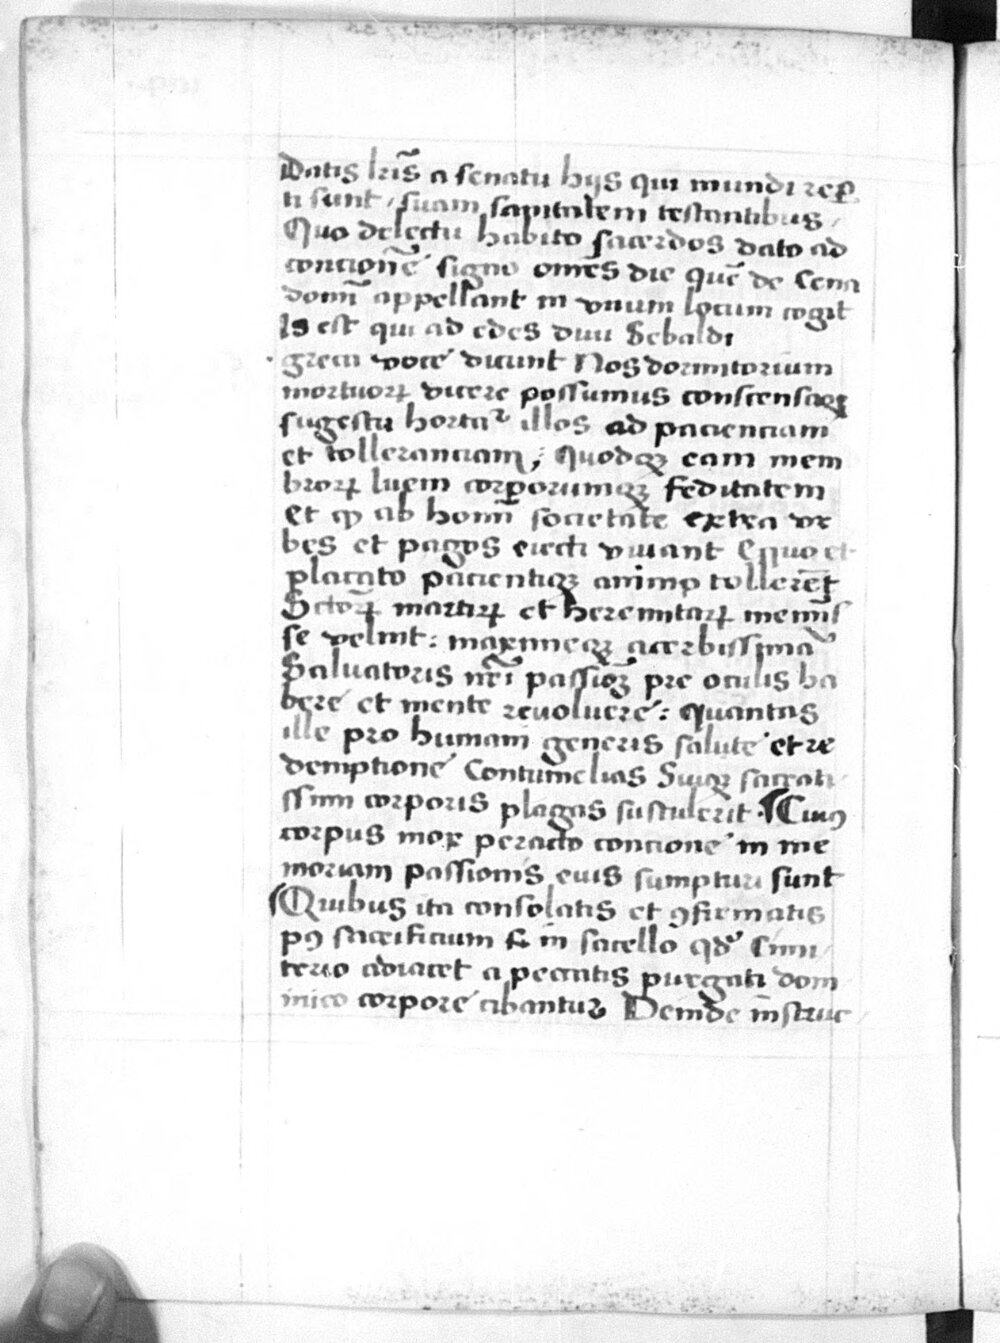 Datis lr̃is a senatu hijs qui mundi reꝑ
ti sunt / suam sapitalem testantibus /
Quo delectu habito sacerdos dato ad
concionẽ signo om̃es die quẽ de Cena
domĩ appellant in vnum locum cogit
Is est qui ad edes diui Sebaldi
greci voce dicunt Nos dormitorium
mortuoꝝ dicere possumus conscenso
sugestu hortat᷑ illos ad pacienciam
et tolleranciam; Quodqꝫ eam mem
broꝝ luem corꝑorumqꝫ feditatem
Et ꝙ ab homĩ societate extra vr
bes et pagos eiecti viuant Equo et
placato pacientiqꝫ animo tollerẽt
Sctõꝝ martiꝝ et heremitaꝝ memĩs
se velint: maximeqꝫ acerbissimã
Saluatoris nr̃i passiõꝫ pre oculis ha
berẽ et mente reuoluerẽ: quantas
ille pro humani generis salutẽ et re
demptionẽ Contumelias Suiqꝫ sacrati
ssimi corporis plagas sustulerit ¶ Cuiꝰ
corpus mox peracto concionẽ in me
moriam passionis euis sumpturi sunt
¶ Quibus ita consolatis et ꝯfirmatis
pꝰ sacrificium in sacello qd̕ Cimi
terio adiacet a peccatis purgati dom
inico corporẽ cibantur Deinde instruc